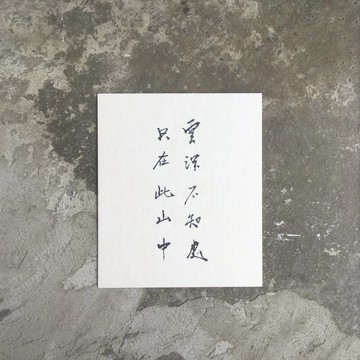 雲深不知處
只在此山中